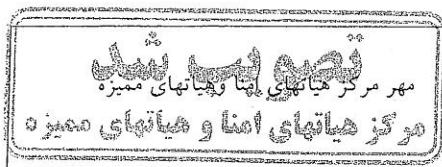 تصویب شد
مهر مرکز هیأتهای امنا وهیأتهای ممیزه
مرکز هیاتهای امنا و هیأتهای ممیزه